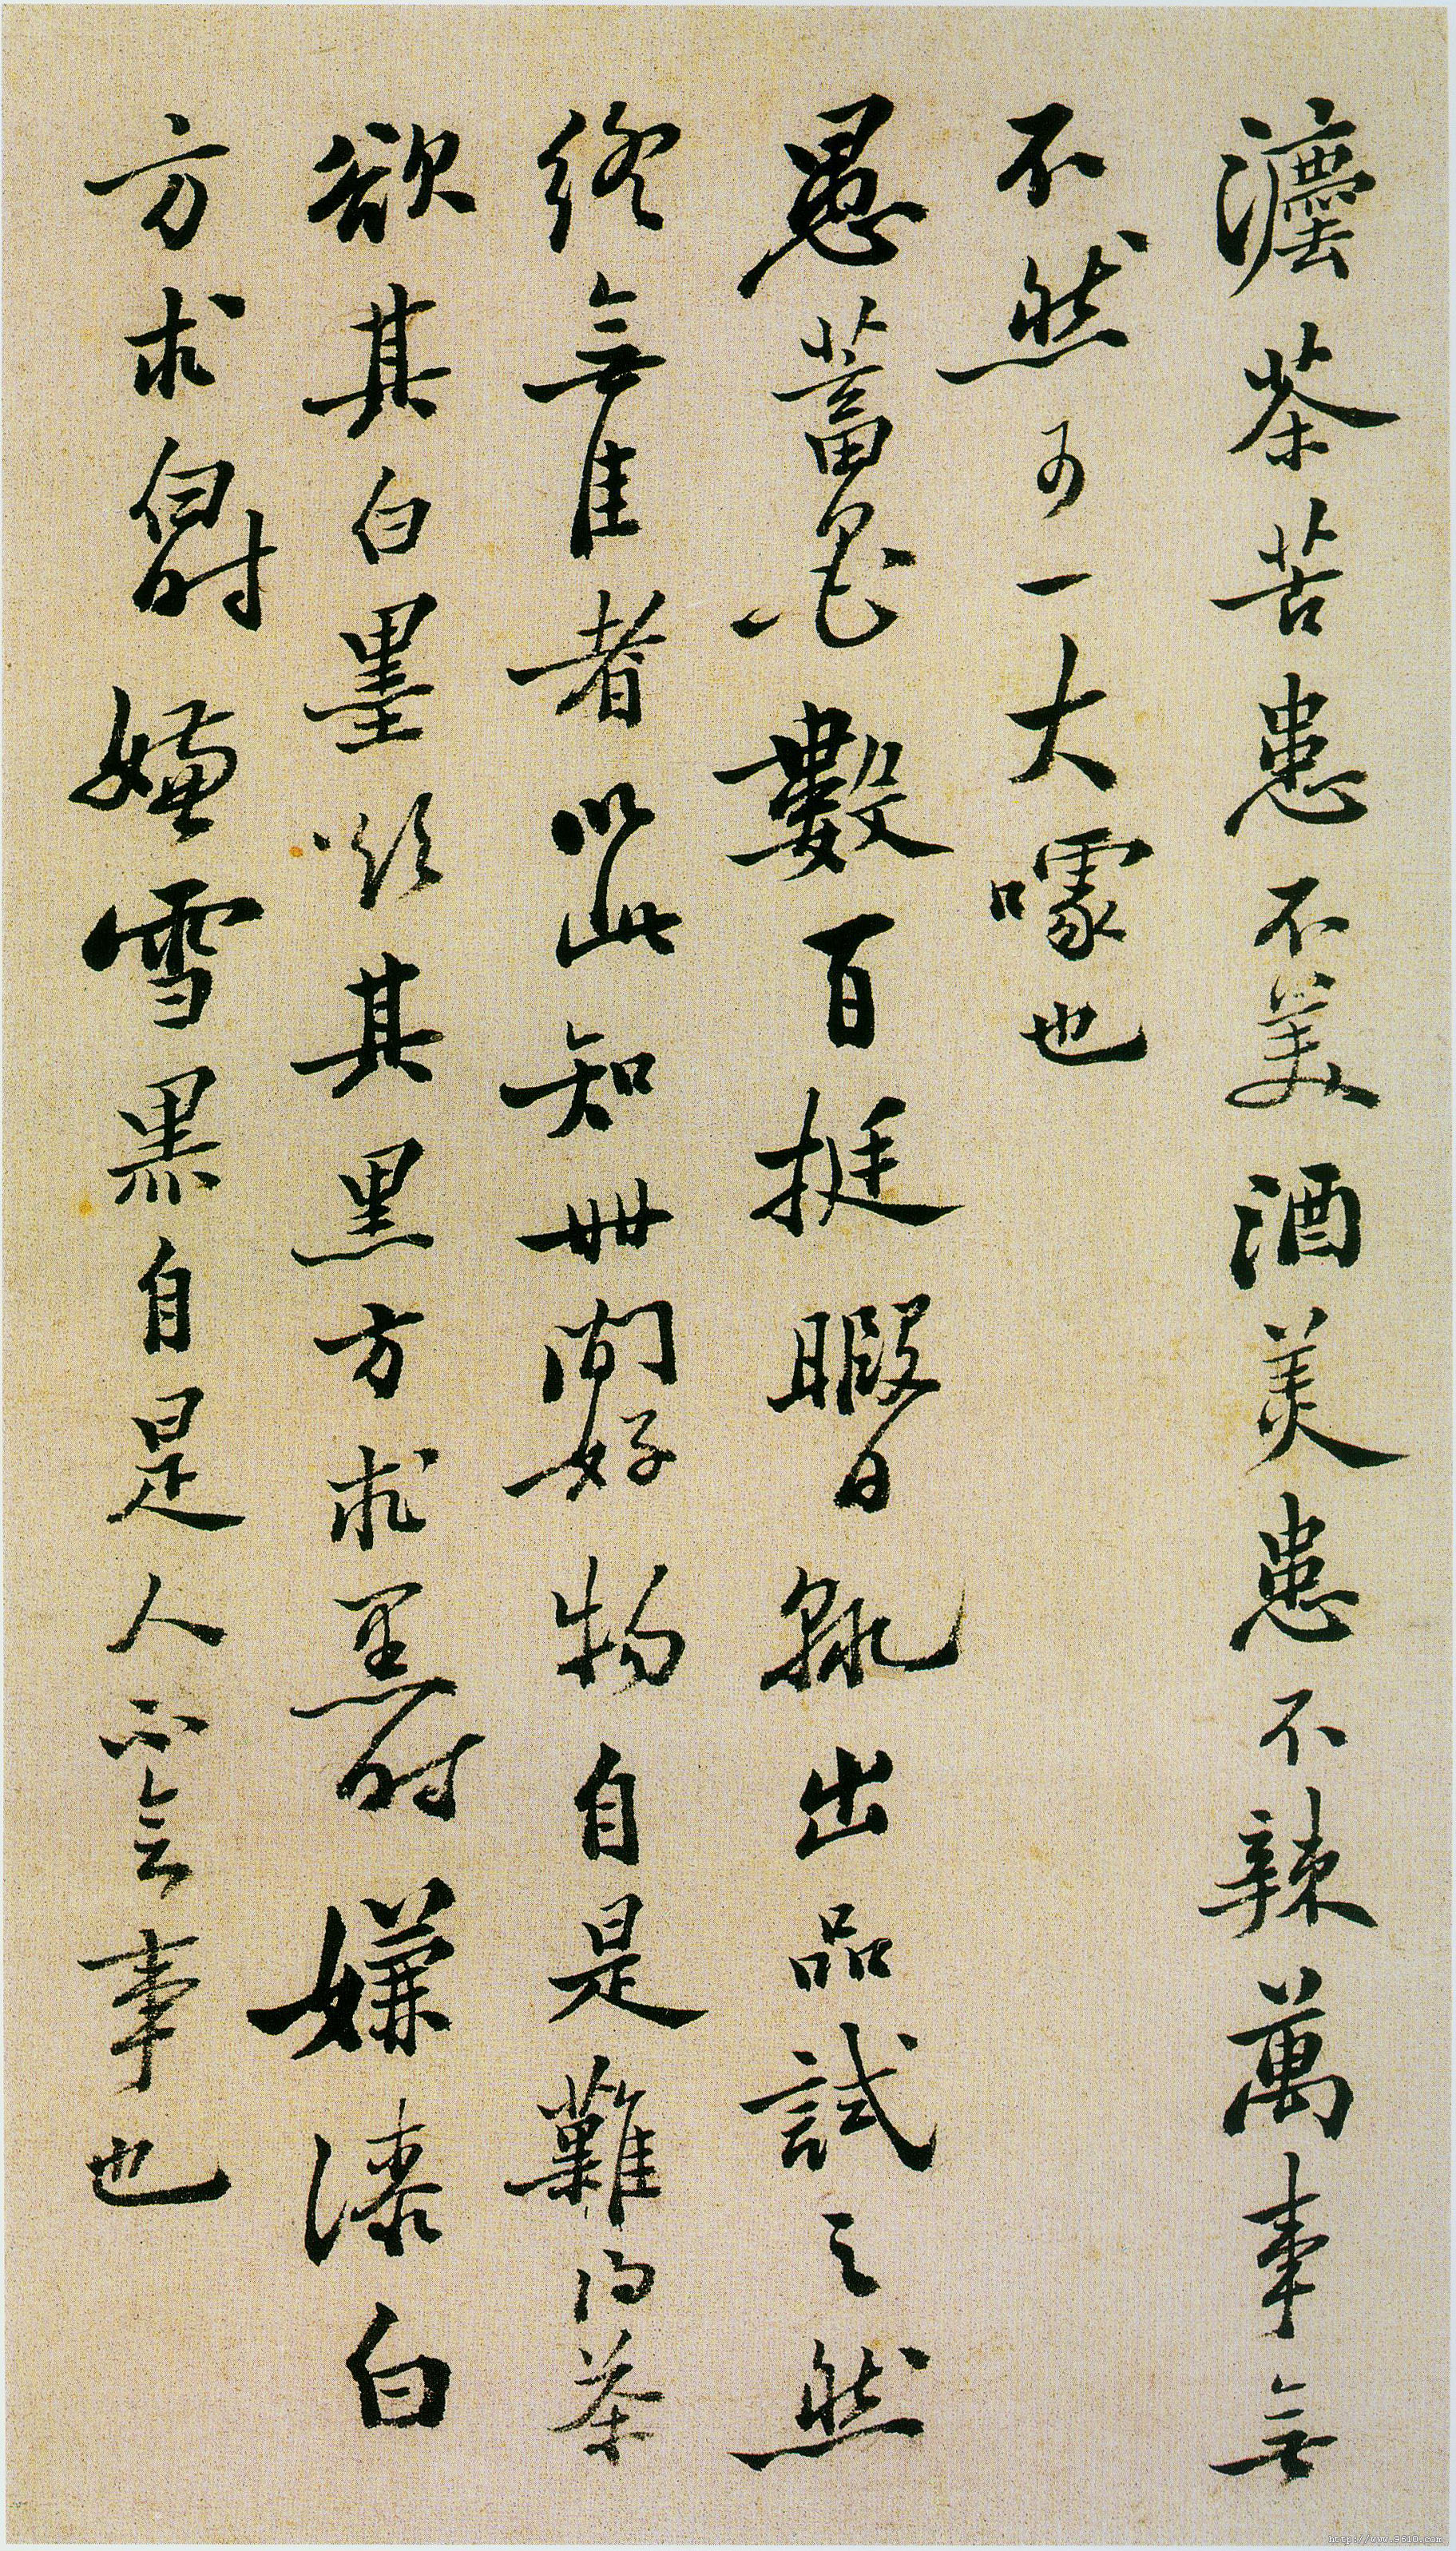 灋茶苦患不美酒美患不辣萬事無
不然可一大噱也
愚蓄墨數百挺暇日輒出品試之然
終無佳者以此知世間好物自是難得茶
欲其白墨欲其黑方求黑時嫌漆白
方求白時嫌雪黑自是人不會事也
http://www.9610.com